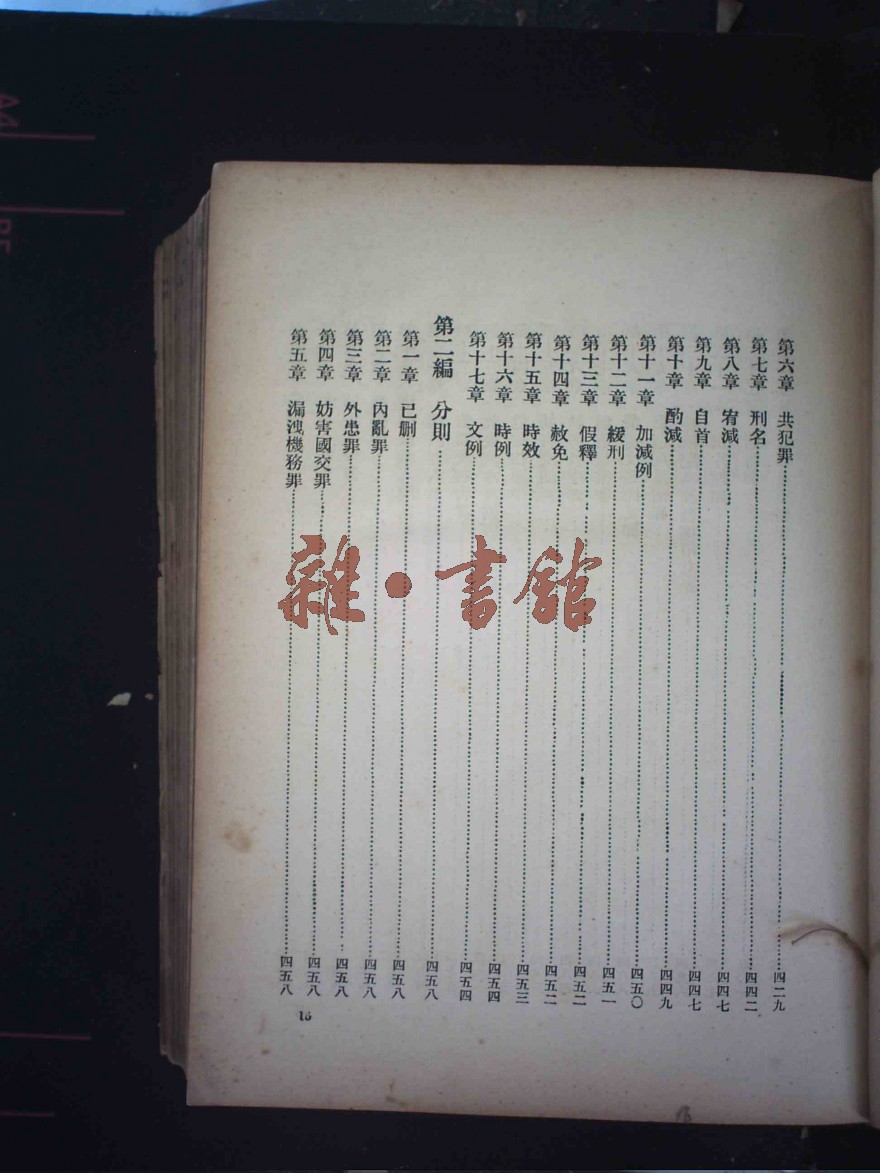 第六章　共犯罪……四二九
第七章　刑名……四四二
第八章　宥減……四四七
第九章　自首……四四七
第十章　酌減……四四九
第十一章　加減例……四五〇
第十二章　緩刑……四五一
第十三章　假釋……四五二
第十四章　赦免……四五二
第十五章　時效……四五三
第十六章　時例……四五四
第十七章　文例……四五四
第二編　分則……四五八
第一章　已刪……四五八
第二章　內亂罪……四五八
第三章　外患罪……四五八
第四章　妨害國交罪……四五八
第五章　漏洩機務罪……四五八
雜·書館
A4